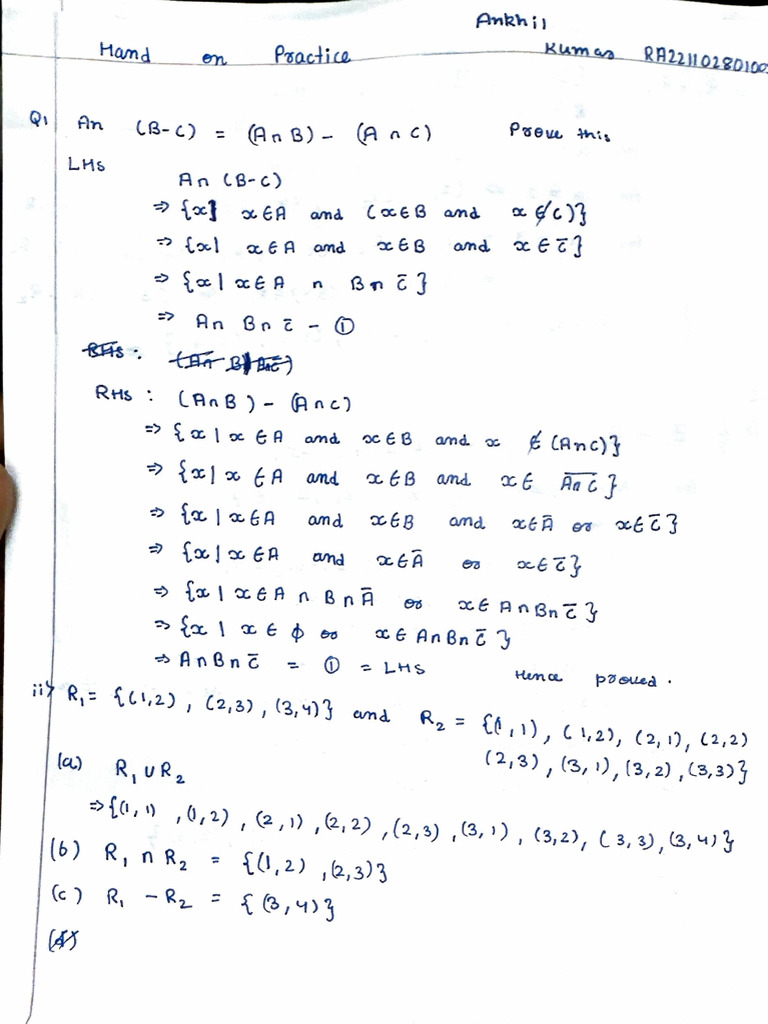 Ankhil
Hand on Practice Kumar RA2211028010
Q1 A∩ (B-C) = (A∩B) - (A ∩ C) Prove this
LHS
A∩ (B-C)
⇒ {x| x∈A and (x∈B and x ∉ C)}
⇒ {x| x∈A and x∈B and x∈ c̄}
⇒ {x | x∈A ∩ B∩ c̄}
⇒ A∩ B∩ c̄ - ①
RHS :
RHS : (A∩B) - (A∩C)
⇒ {x | x ∈A and x∈B and x ∉ (A∩C)}
⇒ {x | x ∈A and x∈B and x∈ \overline{A∩C}}
⇒ {x | x∈A and x∈B and x∈Ā or x∈c̄}
⇒ {x | x∈A and x∈Ā or x∈c̄}
⇒ {x | x∈A ∩ B∩Ā or x∈A∩B∩c̄}
⇒ {x | x ∈ ϕ or x∈A∩B∩c̄}
⇒ A∩B∩c̄ = ① = LHS Hence proved.
ii> R₁ = {(1,2), (2,3), (3,4)} and R₂ = {(1,1), (1,2), (2,1), (2,2)
(2,3), (3,1), (3,2), (3,3)}
(a) R₁ ∪ R₂
⇒ {(1,1), (1,2), (2,1), (2,2), (2,3), (3,1), (3,2), (3,3), (3,4)}
(b) R₁ ∩ R₂ = {(1,2), (2,3)}
(c) R₁ - R₂ = {(3,4)}